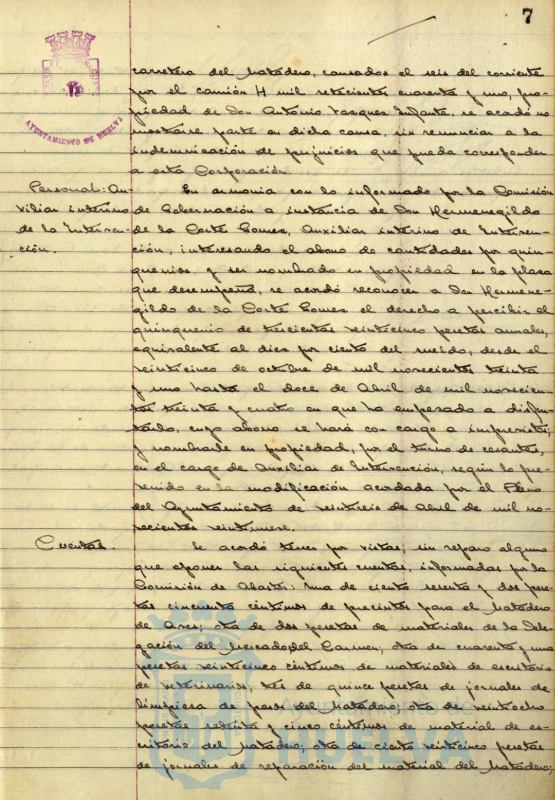 7
AYUNTAMIENTO DE HUELVA
carretera del Matadero, causados el seis del corriente
por el camión H mil setecientos cuarenta y uno, pro-
piedad de Don Antonio Vazquez Infante, se acordó no
mostrarse parte en dicha causa, sin renunciar a la
indemnización de perjuicios que pueda corresponder
a esta Corporación.
Personal: Au-
xiliar interino
de la Interven-
ción.
En armonia con lo informado por la Comisión
de Gobernación a instancia de Don Hermenegildo
de la Corte Gomez, Auxiliar interino de Interven-
ción, interesando el abono de cantidades por quin-
quenios, y ser nombrado en propiedad en la plaza
que desempeña, se acordó reconocer a Don Hermene-
gildo de la Corte Gomez el derecho a percibir el
quinquenio de trescientas veinticinco pesetas anuales,
equivalente al diez por ciento del sueldo, desde el
veinticinco de octubre de mil novecientos treinta
y uno hasta el doce de Abril de mil novecien-
tos treinta y cuatro en que ha empezado a disfru-
tarlo, cuyo abono se hará con cargo a imprevistos;
y nombrarle en propiedad, por el turno de cesantes,
en el cargo de Auxiliar de Intervención, según lo pre-
venido en la modificación acordada por el Pleno
del Ayuntamiento de veintiseis de Abril de mil no-
vecientos veintinueve.
Cuentas.
Se acordó tener por vistas, sin reparo alguno
que oponer las siguientes cuentas, informadas por la
Comisión de Abastos: Una de ciento sesenta y dos pese-
tas cincuenta céntimos de precintos para el Matadero
de Aves; otra de dos pesetas de materiales de la Dele-
gación del Mercado del Carmen; otra de cuarenta y una
pesetas veinticinco céntimos de materiales de escritorio
de veterinarios; tres de quince pesetas de jornales de
limpieza de pesos del Matadero; otra de veintiocho
pesetas setenta y cinco céntimos de material de es-
critorio del Matadero; otra de ciento veinticinco pesetas
de jornales de reparación del material del Matadero;
HUELVA